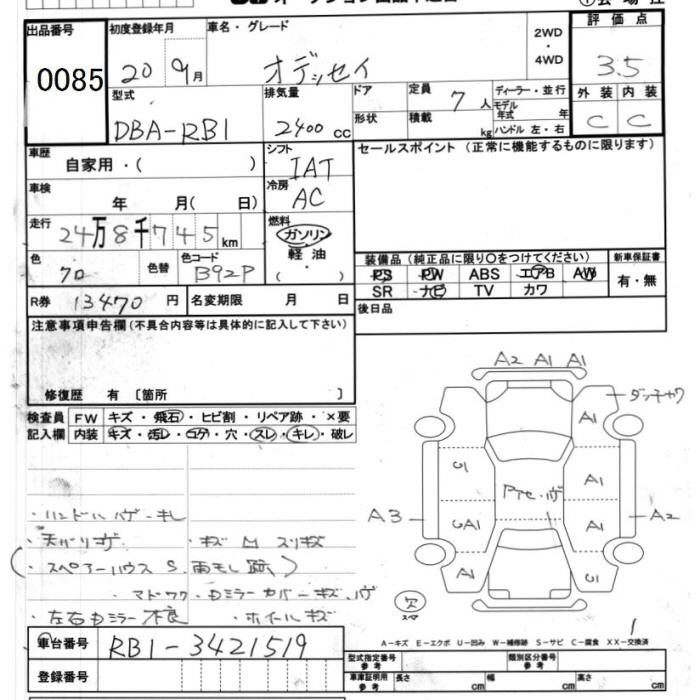 出品番号 初度登録年月 車名・グレード 2WD・4WD 評価点
0085 20 9月 オデッセイ 3.5
型式 排気量 ドア 定員 7人 ディーラー・並行 外装 内装
DBA-RB1 2400cc 形状 積載 kg モデル年式 年 ハンドル 左・右 C C
車歴 自家用・( ) シフト IAT セールスポイント (正常に機能するものに限ります)
車検 年 月( 日) 冷房 AC
走行 24万8千745km 燃料 ガソリン 軽油 ( )
色 クロ 色替 色コード B92P 装備品 (純正品に限り○をつけてください) 新車保証書
PS PW ABS エアB AW 有・無
SR ナビ TV カワ
R券 13470円 名変期限 月 日 後日品
注意事項申告欄(不具合内容等は具体的に記入して下さい)
修復歴 有 〔箇所 〕
検査員 FW キズ・飛石・ヒビ割・リペア跡・×要
記入欄 内装 キズ・汚レ・コゲ・穴・スレ・キレ・破レ
A2 A1 A1
A1 ダッチャク
U1 A1
Pテゼ・ハゲ
A3 UA1 A1 A2
A1 U1
・ハンドル ハゲ・キレ
・天バリ キズ ・キズ凹 スリキズ
(・スペアーハウス S. 雨モレ跡)
・マドワク・ドミラーカバーキズ・ハゲ
・左右ドミラー不良 ・ホイールキズ
欠
スペア
車台番号 RB1-3421519
A-キズ E-エクボ U-凹み W-補修跡 S-サビ C-腐食 XX-交換済
型式指定番号 参考 類別区分番号 参考
登録番号 車庫証明用 参考 長さ cm 幅 cm 高さ cm